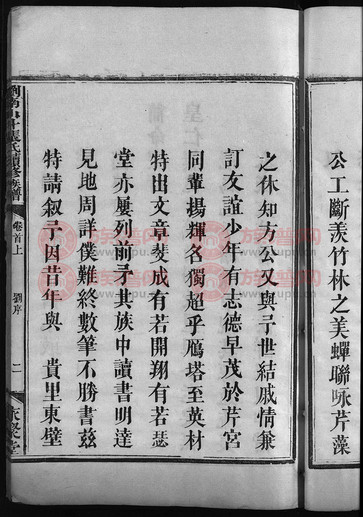 公工斷羨竹林之美蟬聯咏芹藻
之休知方公又與予世結戚情兼
訂友誼少年有志德早茂於芹宮
同輩揚輝名獨超乎鴈塔至英材
特出文章夌成有若開翔有若瑟
堂亦屢列前矛其族中讀書明達
見地周詳僕難終數筆不勝書茲
特請叙予因昔年與　貴里東壁
張氏續修族譜
卷首上
劉序
二
族譜网